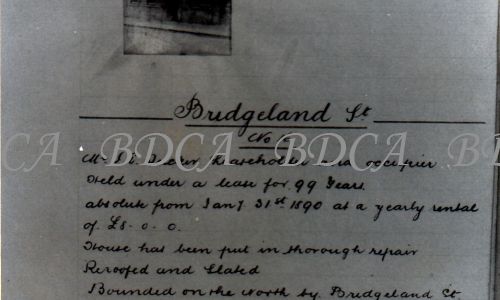 Bridgeland St
No
Leaseholder and occupier
Held under a lease for 99 Years
absolute from Jany 31st 1890 at a yearly rental
of £8-0-0.
House has been put in thorough repair
Reroofed and Slated
Bounded on the North by Bridgeland St
BDCA BDCA BD